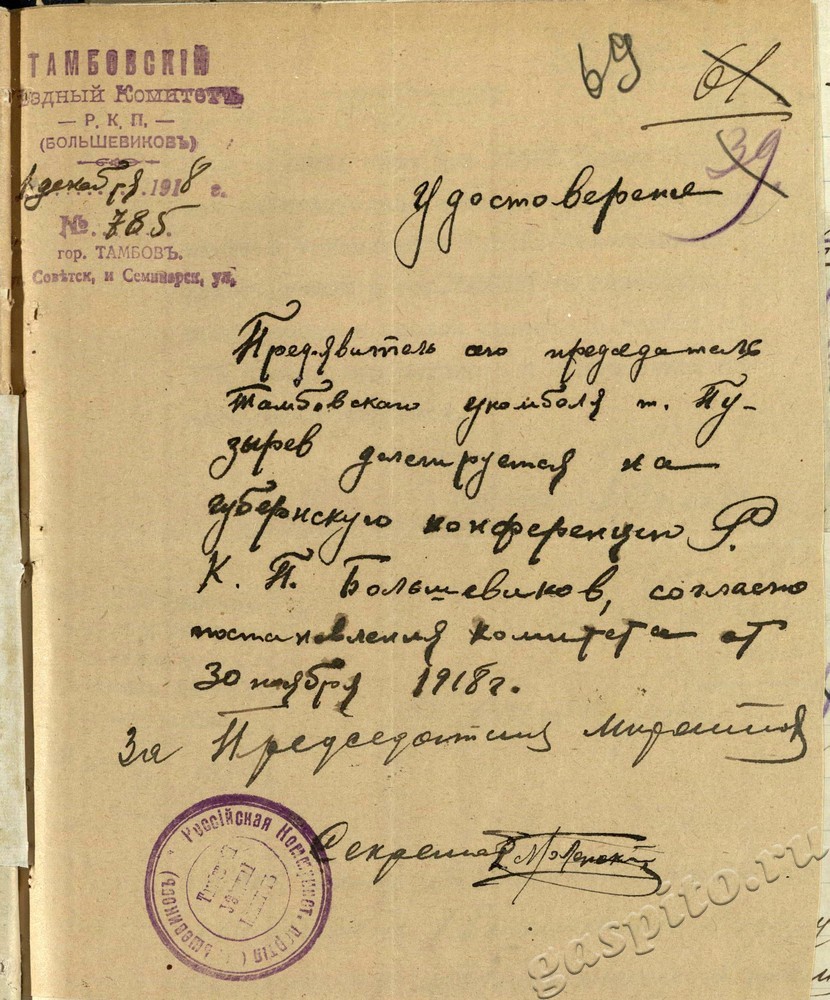 ТАМБОВСКІЙ
ѣздный Комитетъ
— Р. К. П. —
(БОЛЬШЕВИКОВЪ)
декабря 1918 г.
№. 785.
гор. ТАМБОВЪ.
Совѣтск, и Семинарск, ул,
69
61
39
Удостоверение
Предявитель сего председатель
Тамбовского укомболя т. Пу-
зырев делегируется на
губернскую конференцию Р.
К. П. Большевиков, согласно
постановления комитета от
30 ноября 1918 г.
За Председателя
Секретарь
Россійская Коммунист. партія (Большевиковъ)
gaspito.ru